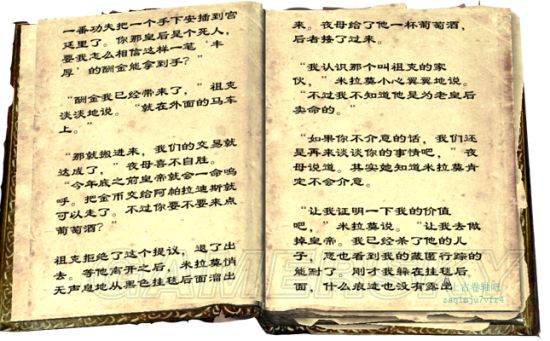 一番功夫把一个手下安插到宫
廷里了。你那皇后是个死人，
要我怎么相信这样一笔‘丰
厚’的酬金能拿到手？”
“酬金我已经带来了，”祖克
淡淡地说。“就在外面的马车
上。”
“那就搬进来，我们的交易就
达成了，”夜母喜不自胜。
“今年底之前皇帝就会一命呜
呼。把金币交给阿帕拉迪斯就
可以走了。不过你要不要来点
葡萄酒？”
祖克拒绝了这个提议，退了出
去。等他离开之后，米拉莫悄
无声息地从黑色挂毯后面溜出
来。夜母给了他一杯葡萄酒，
后者接了过来。
“我认识那个叫祖克的家
伙，”米拉莫小心翼翼地说。
“不过我不知道他是为老皇后
卖命的。”
“如果你不介意的话，我们还
是再来谈谈你的事情吧，”夜
母说道。其实她知道米拉莫肯
定不会介意。
“让我证明一下我的价值
吧，”米拉莫说。“让我去做
掉皇帝。我已经杀了他的儿
子，您也看到我的藏匿行踪的
能耐了。刚才我躲在挂毯后
面，什么痕迹也没有露出
GAMERSKY
上古卷轴吧
zaq1mju7vfr4